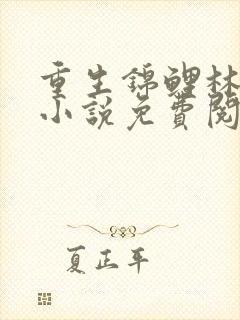 重生锦鲤林
小说免费阅
夏正平